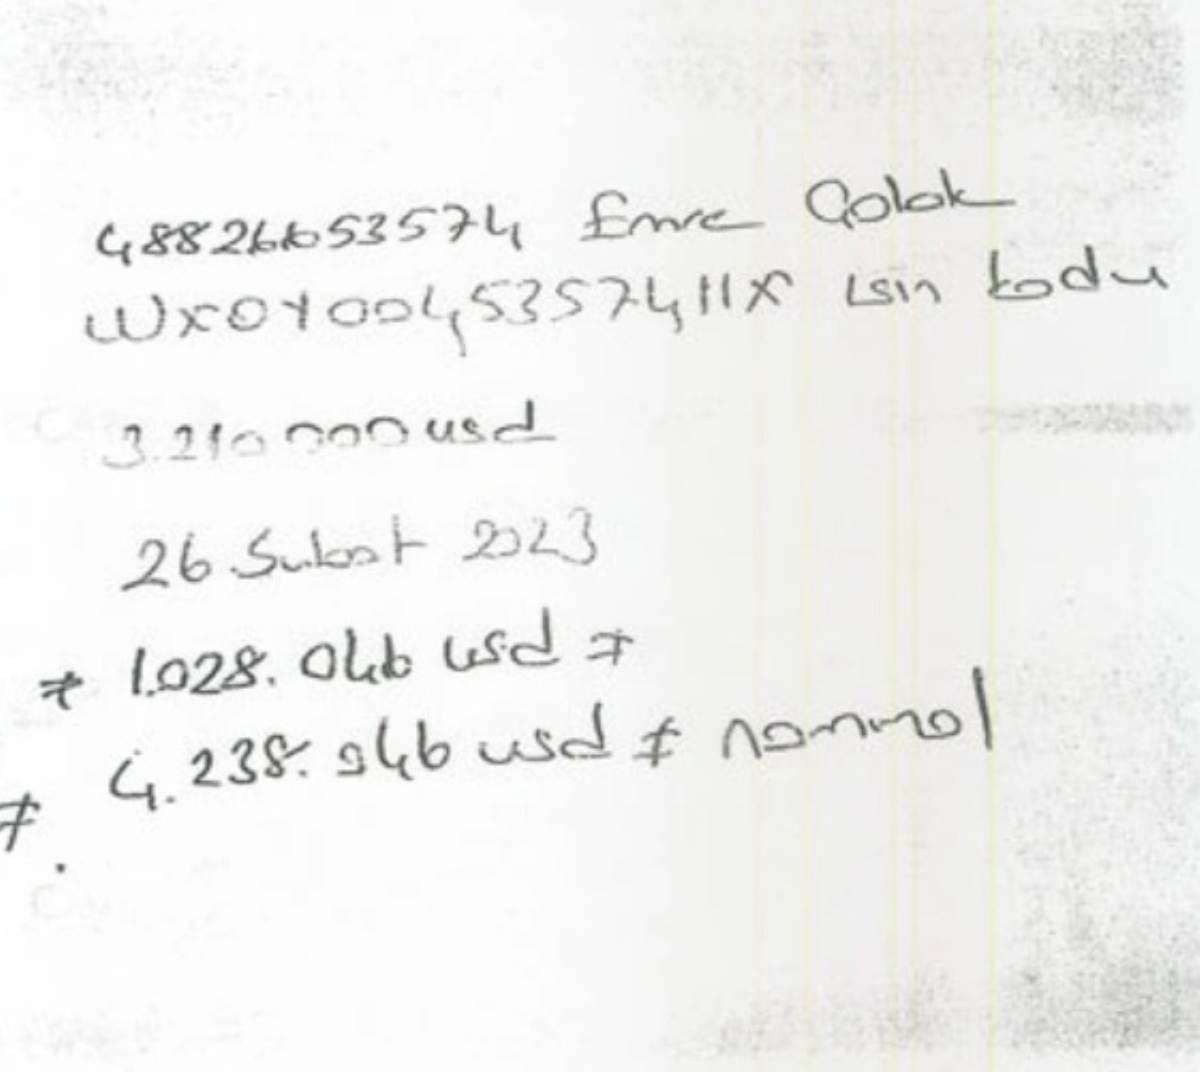 48826653574 Emre Çolak
WX0Y004535741IX Isin kodu
3.210 000 usd
26 Subat 2023
≠ 1.028. 046 usd ≠
≠. 4. 238. 946 usd ≠ nominal